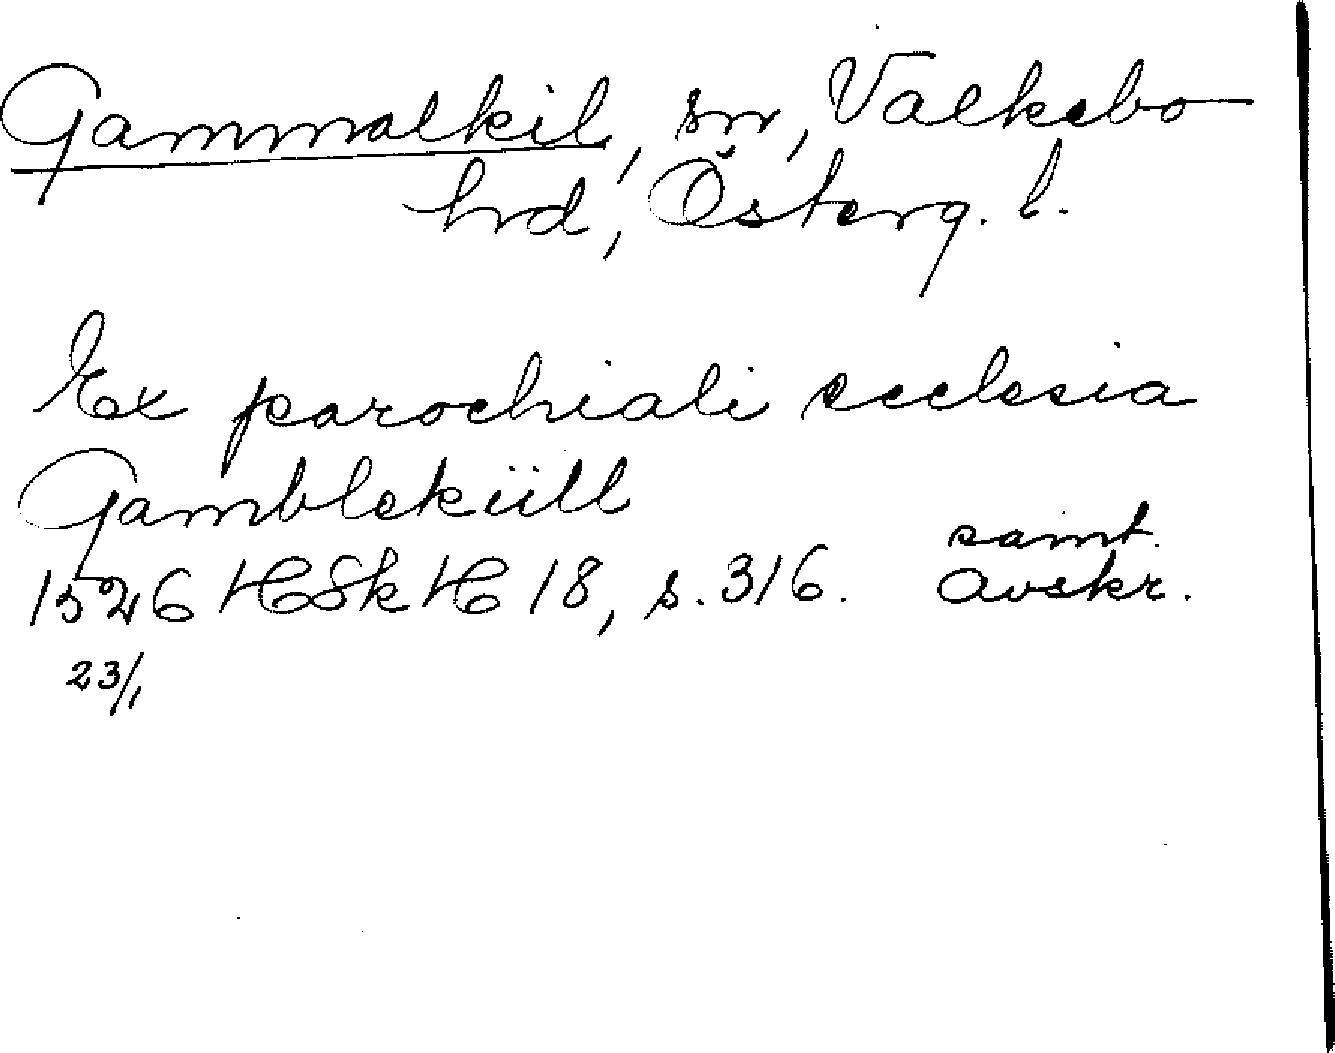 Gammalkil, sn, Valkebo
hrd, Österg. l.
Ex parochiali ecclesia
Gambleküll
samt.
1526 HSkH 18, s. 316. avskr.
23/1